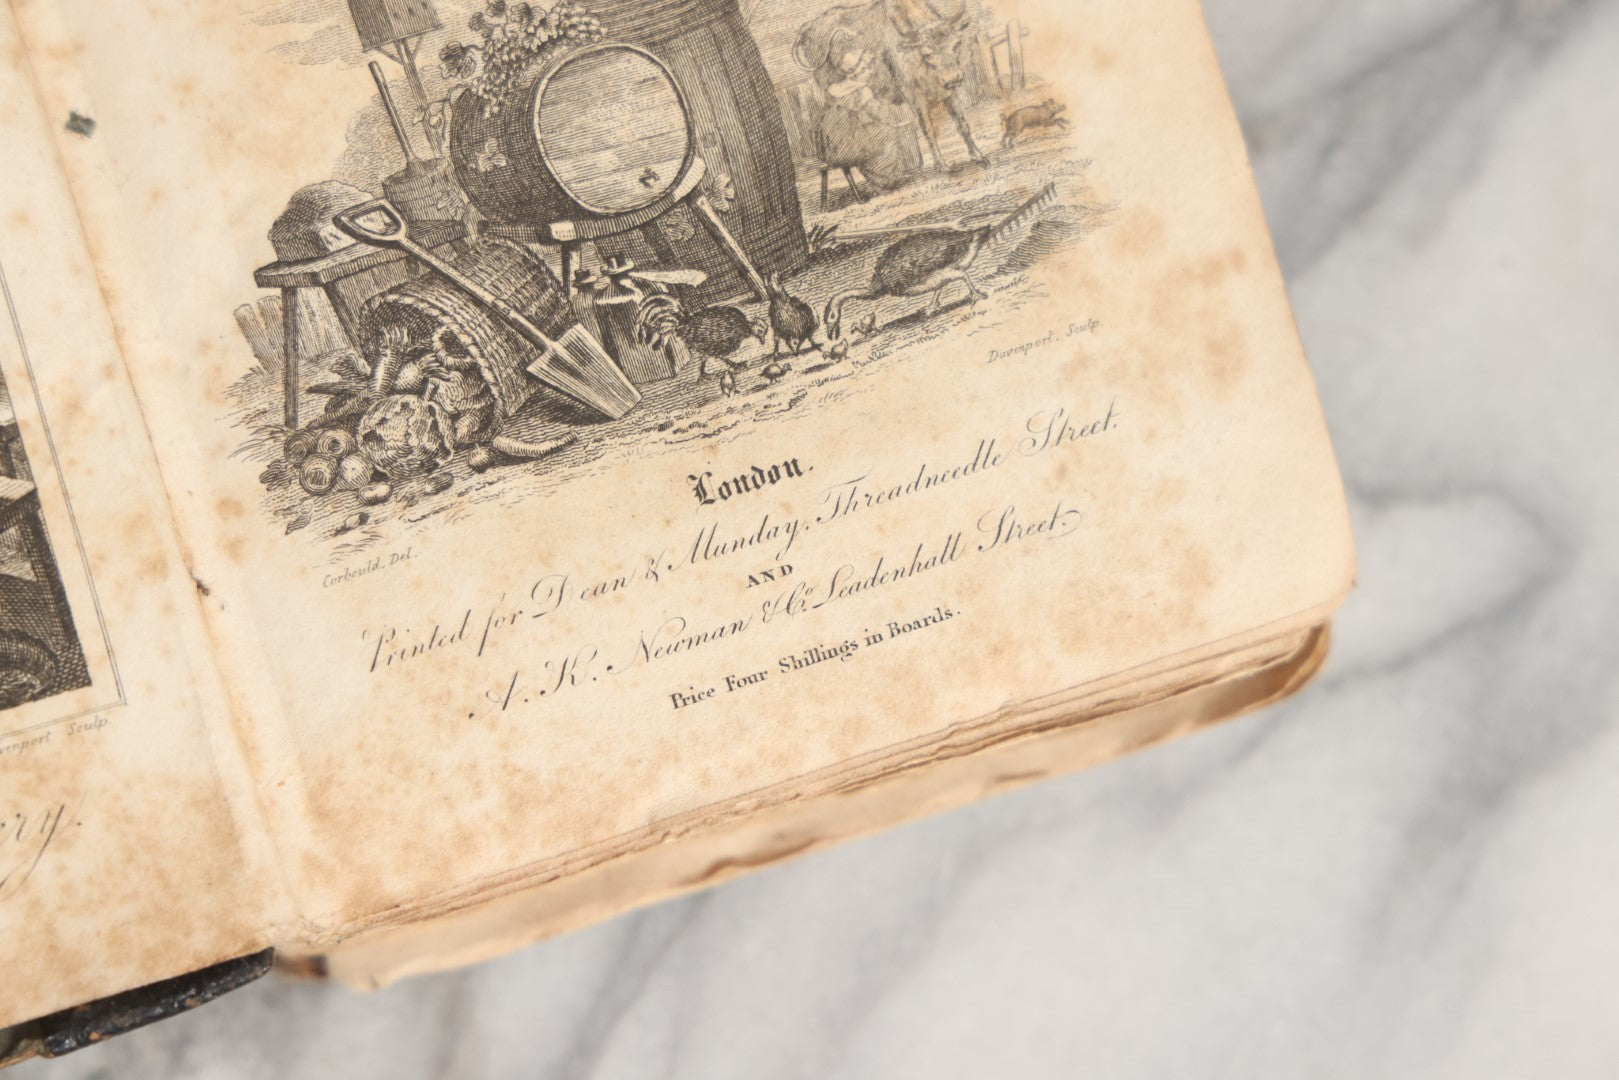 Davenport, Sculp.
Corbould, Del.
London.
Printed for Dean & Munday, Threadneedle Street.
AND
A. K. Newman & Co. Leadenhall Street.
Price Four Shillings in Boards.
Sculp.